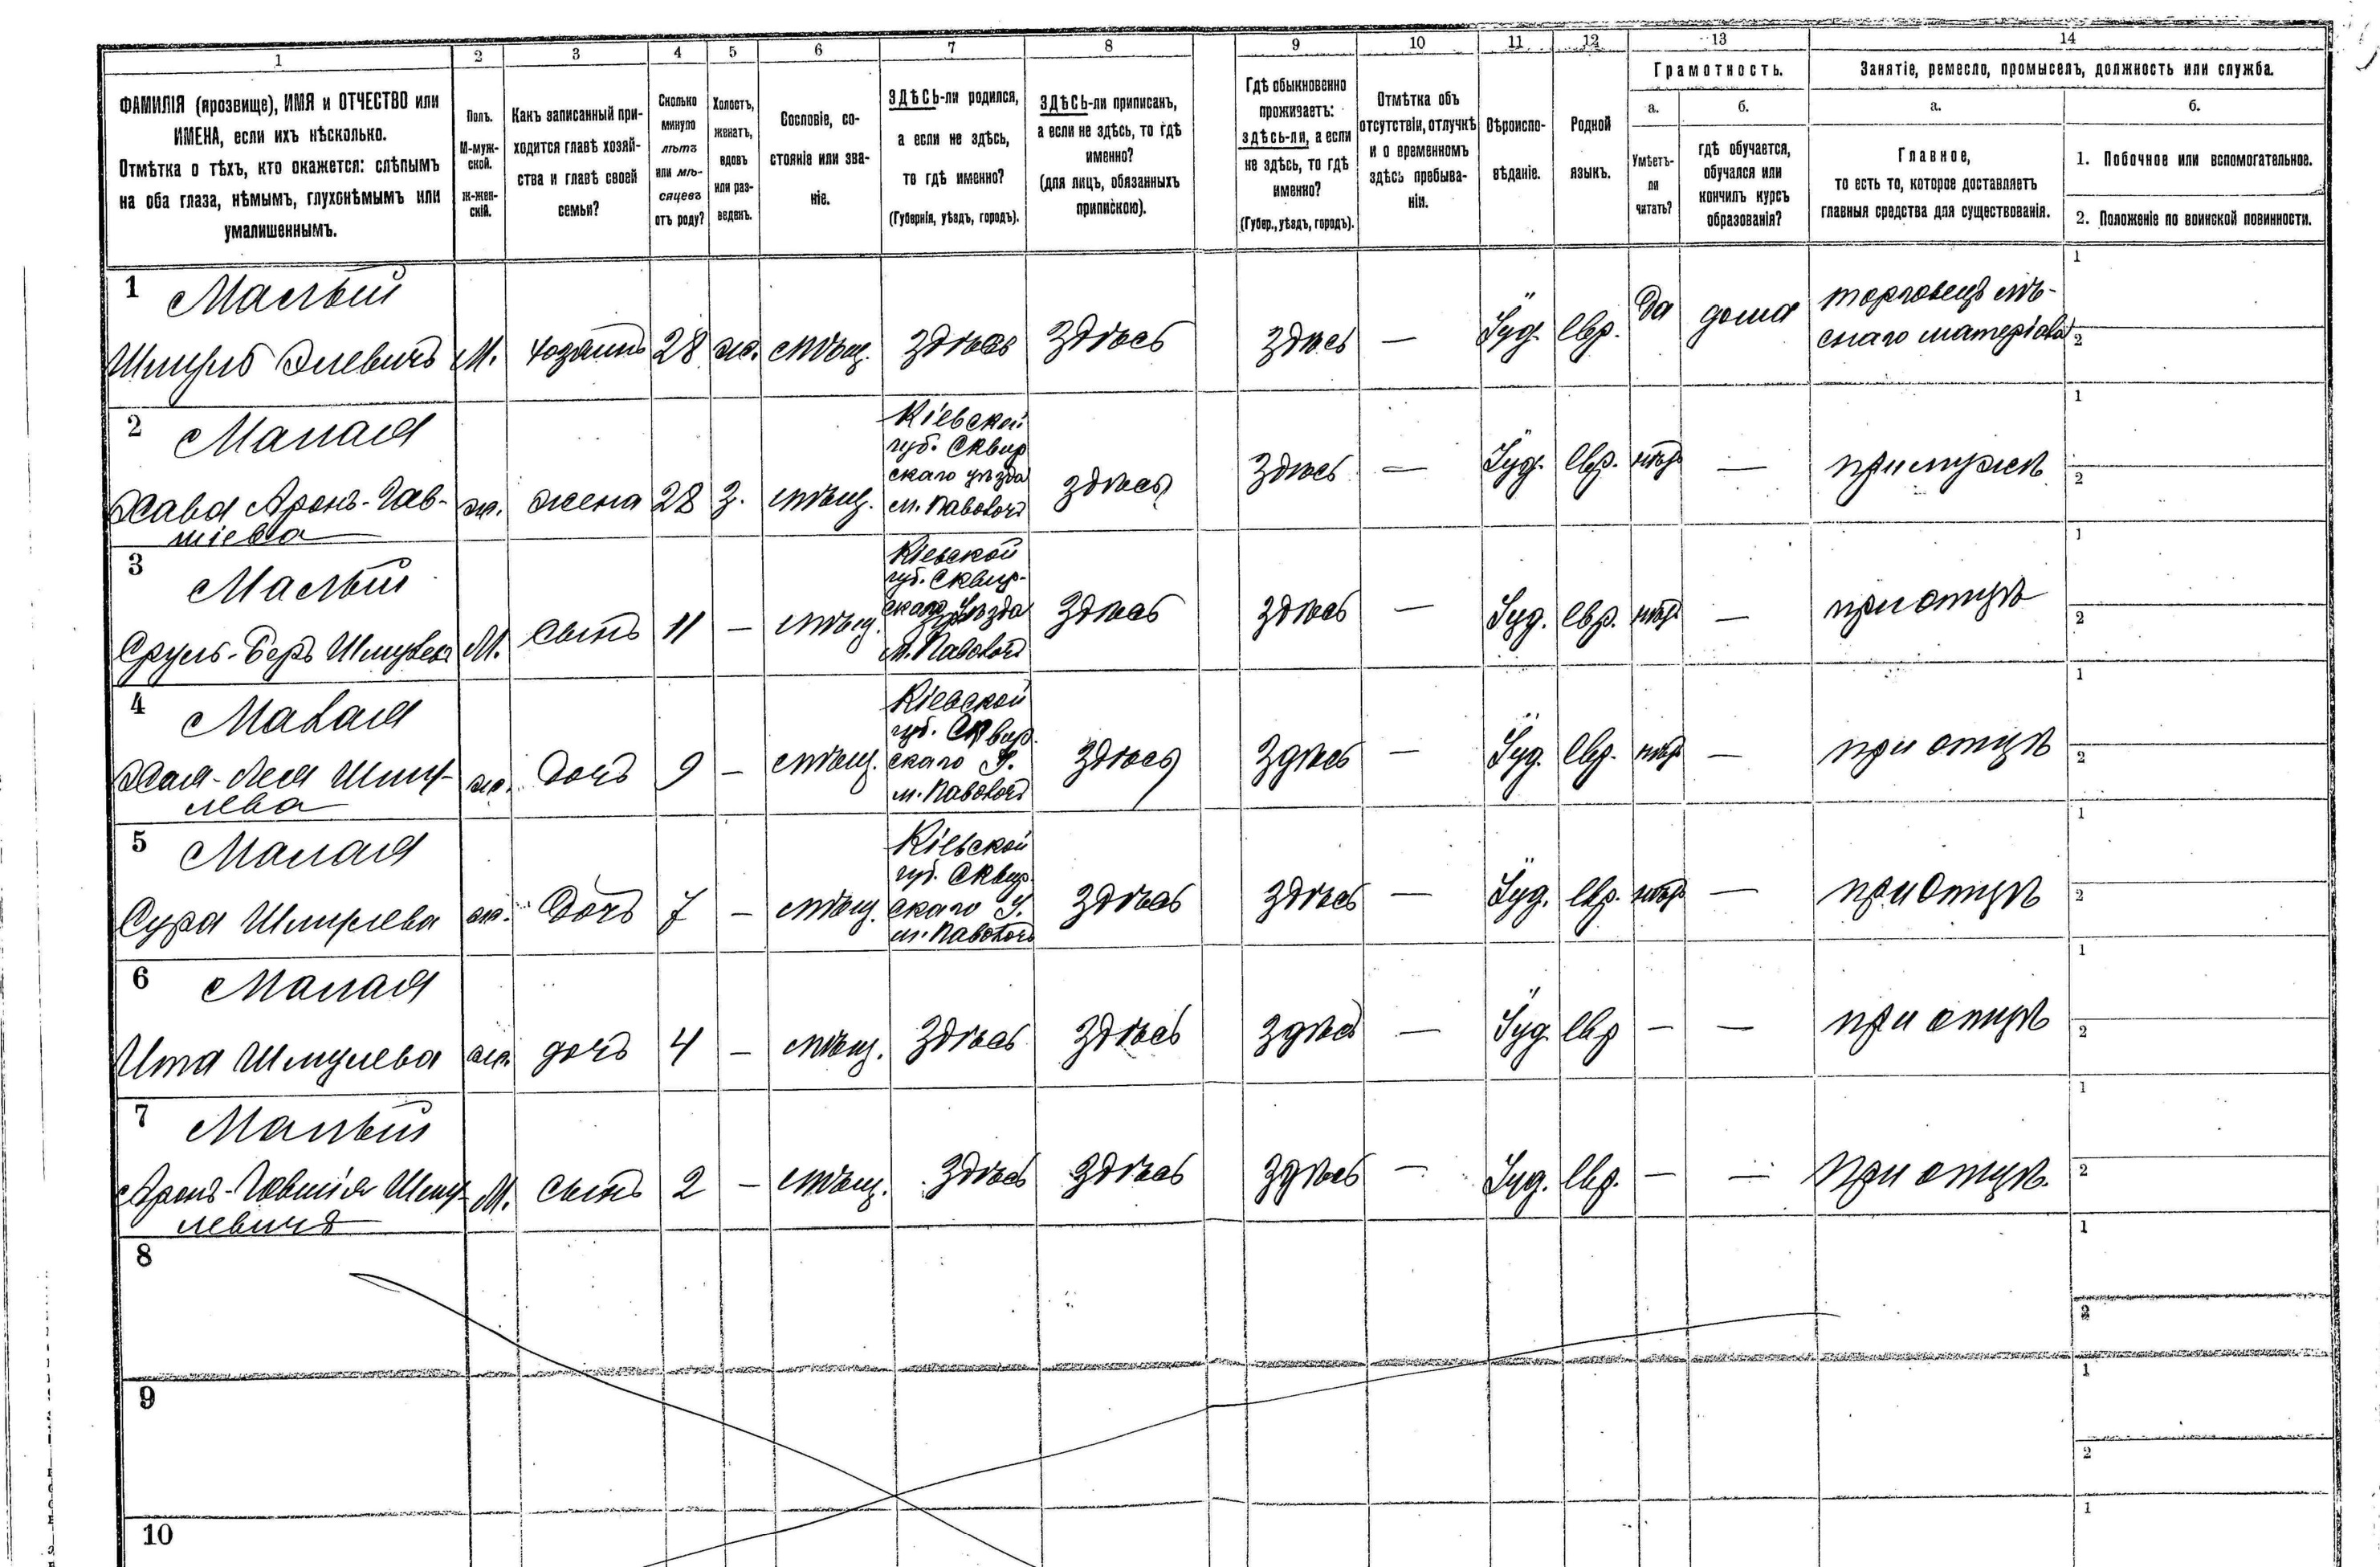 1 2 3 4 5 6 7 8 9 10 11 12 13 14
ФАМИЛІЯ (прозвище), ИМЯ и ОТЧЕСТВО или
ИМЕНА, если ихъ нѣсколько.
Отмѣтка о тѣхъ, кто окажется: слѣпымъ
на оба глаза, нѣмымъ, глухонѣмымъ или
умалишеннымъ.
Полъ.
М-муж-
ской.
ж-жен-
скій.
Какъ записанный при-
ходится главѣ хозяй-
ства и главѣ своей
семьи?
Сколько
минуло
лѣтъ
или мѣ-
сяцевъ
отъ роду?
Холостъ,
женатъ,
вдовъ
или раз-
веденъ.
Сословіе, со-
стояніе или зва-
ніе.
ЗДѢСЬ-ли родился,
а если не здѣсь,
то гдѣ именно?
(Губернія, уѣздъ, городъ).
ЗДѢСЬ-ли приписанъ,
а если не здѣсь, то гдѣ
именно?
(для лицъ, обязанныхъ
припискою).
Гдѣ обыкновенно
проживаетъ:
здѣсь-ли, а если
не здѣсь, то гдѣ
именно?
(Губер., уѣздъ, городъ).
Отмѣтка объ
отсутствіи, отлучкѣ
и о временномъ
здѣсь пребыва-
ніи.
Вѣроиспо-
вѣданіе.
Родной
языкъ.
Грамотность.
а.
Умѣетъ-
ли
читать?
б.
гдѣ обучается,
обучался или
кончилъ курсъ
образованія?
Занятіе, ремесло, промыселъ, должность или служба.
а.
Главное,
то есть то, которое доставляетъ
главныя средства для существованія.
б.
1. Побочное или вспомогательное.
2. Положеніе по воинской повинности.
1 Малый
Шмуль Элевичъ М. хозяинъ 28 ж. мѣщ. здѣсь здѣсь здѣсь — Іуд. Евр. Да дома
торговецъ лѣ-
снаго матеріала
1
2
2 Малая
Хава Аронъ-Гав-
шіева
ж. жена 28 З. мѣщ.
Кіевской
губ. Сквир
скаго уѣзда
м. Паволочь
здѣсь здѣсь — Іуд. Евр. нѣтъ — при мужѣ
1
2
3 Малый
Сруль-Беръ М. сынъ 11 — мѣщ.
Кіевской
губ. Сквир-
скаго Уѣзда
М. Паволочь
здѣсь здѣсь — Іуд. Евр. нѣтъ — при отцѣ
1
2
4 Малая
Хая-Лея Шму-
лева
ж. дочь 9 — мѣщ.
Кіевской
губ. Сквир.
скаго У.
м. Паволочь
здѣсь здѣсь — Іуд. Евр. нѣтъ — при отцѣ
1
2
5 Малая
Сура Шмулева ж. дочь 7 — мѣщ.
Кіевской
губ. Сквир.
скаго У.
м. Паволочь
здѣсь здѣсь — Іуд. Евр. нѣтъ — при отцѣ
1
2
6 Малая
Ита Шмулева ж. дочь 4 — мѣщ. здѣсь здѣсь здѣсь — Іуд. Евр — — при отцѣ
1
2
7 Малый
Аронъ-Говшія Шму-
левичъ
М. сынъ 2 — мѣщ. здѣсь здѣсь здѣсь — Іуд. Евр. — — при отцѣ.
1
2
8
1
2
9
1
2
10
1